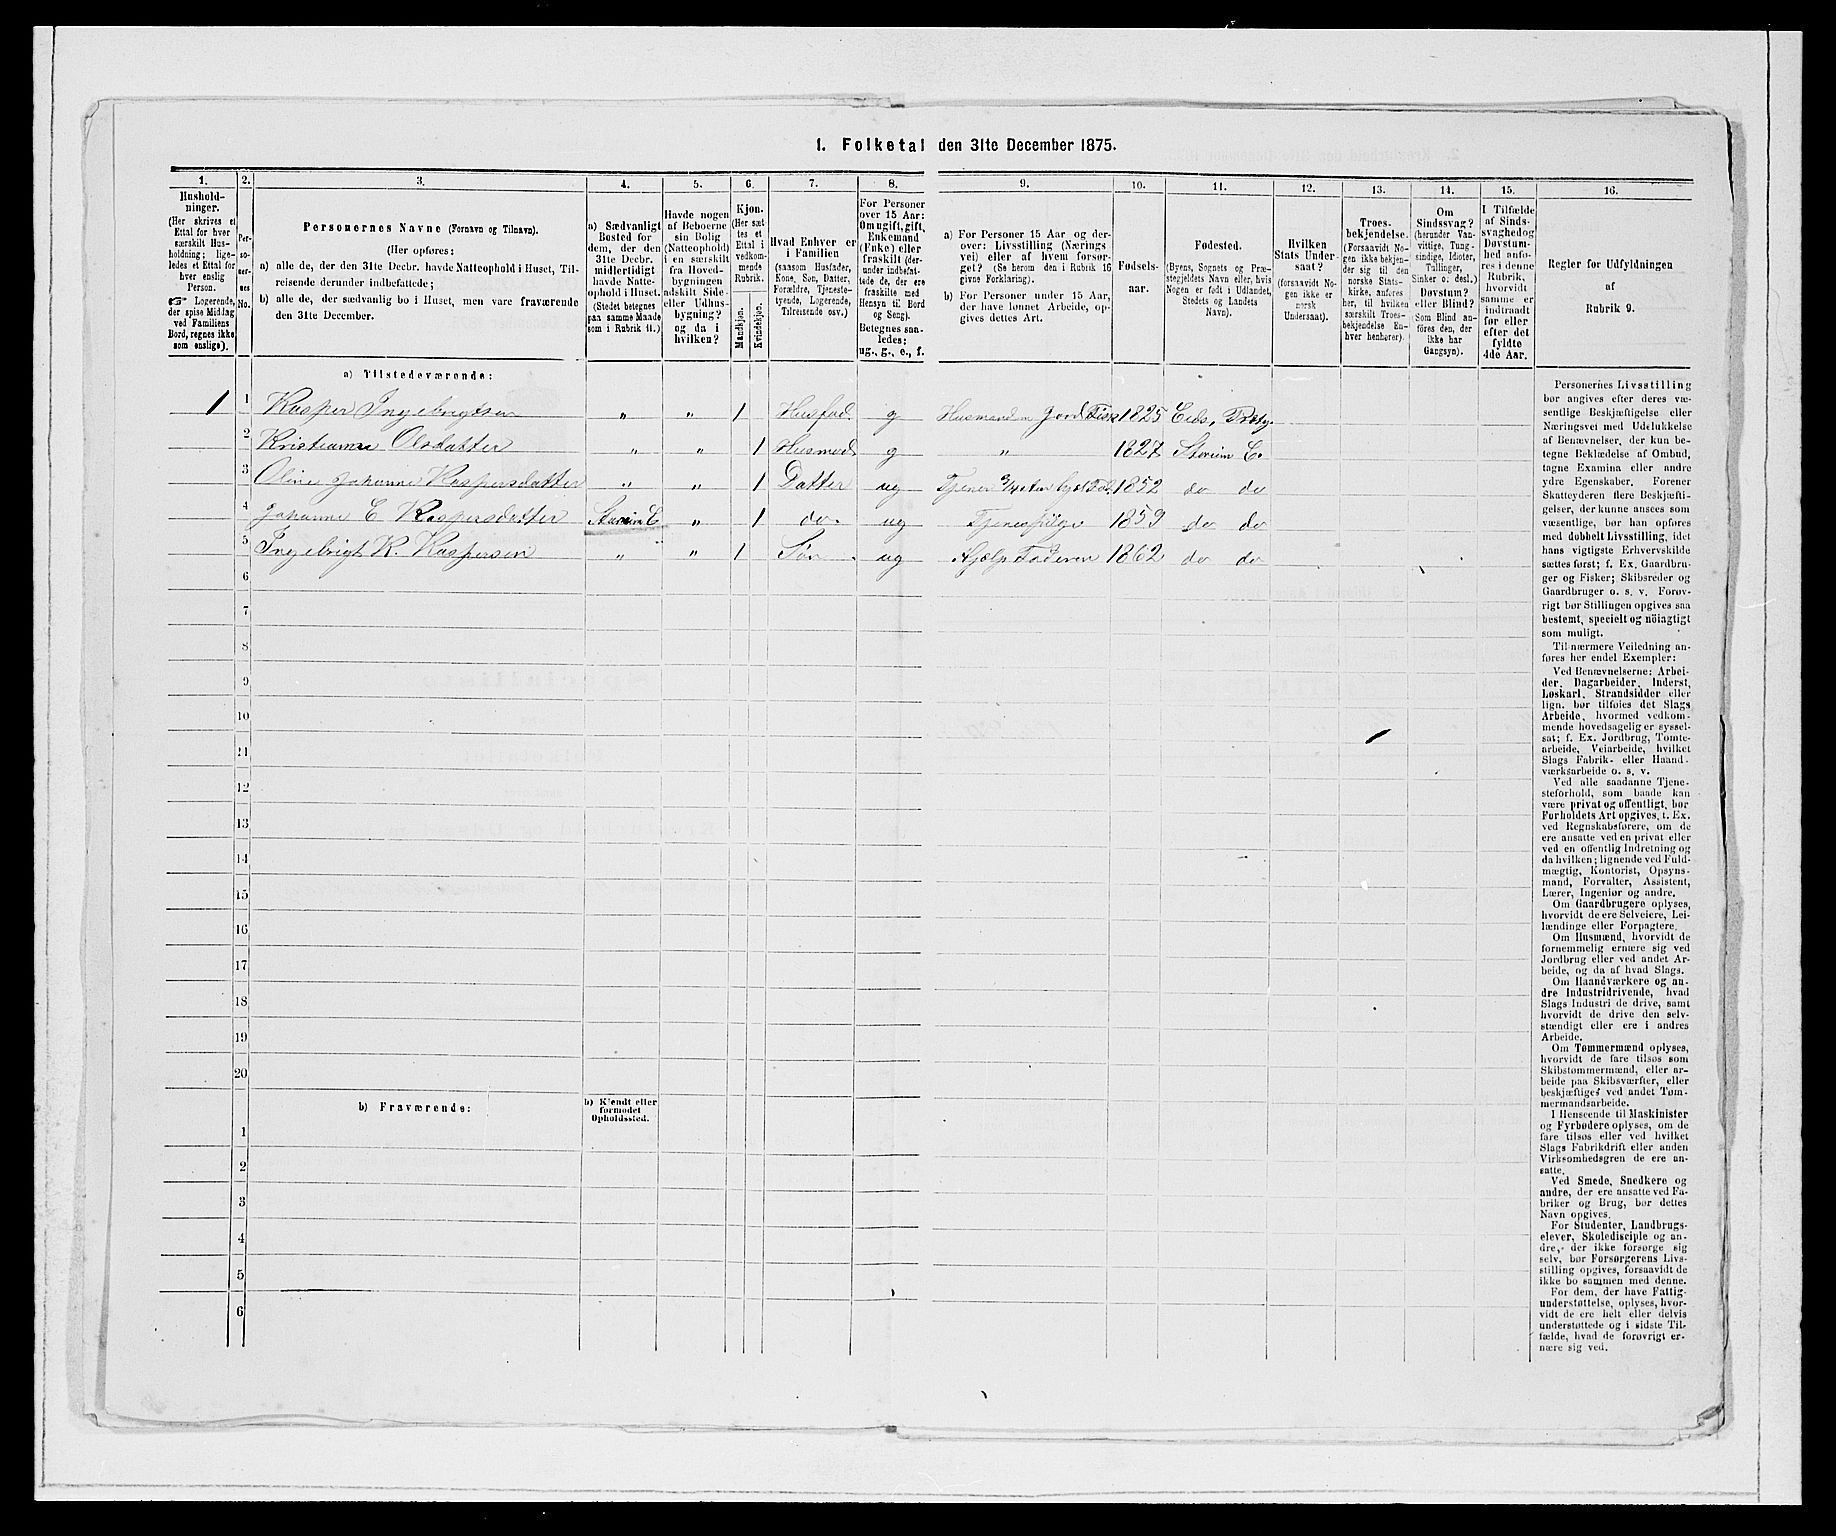 1. Folketal den 31te December 1875.
1.
Hushold-
ninger.
(Her skrives et
Ettal for hver
særskilt Hus-
holdning; lige-
ledes et Ettal for
hver enslig
Person.
☞ Logerende,
der spise Middag
ved Familiens
Bord, regnes ikke
som enslige).
2.
Per-
so-
ner-
nes
No.
3.
Personernes Navne (Fornavn og Tilnavn).
(Her opføres:
a) alle de, der den 31te Decbr. havde Natteophold i Huset, Til-
reisende derunder indbefattede;
b) alle de, der sædvanlig bo i Huset, men vare fraværende
den 31te December.
4.
a) Sædvanligt
Bosted for
dem, der den
31te Decbr.
midlertidigt
havde Natte-
ophold i Huset.
(Stedet betegnes
paa samme Maade
som i Rubrik 11.)
5.
Havde nogen
af Beboerne
sin Bolig
(Natteophold)
i en særskilt
fra Hoved-
bygningen
adskilt Side-
eller Udhus-
bygning?
og da i
hvilken?
6.
Kjøn.
(Her sæt-
tes et
Ettal i
vedkom-
mende
Rubrik.
Mandskjøn.
Kvindekjøn.
7.
Hvad Enhver er
i Familien
(saasom Husfader,
Kone, Søn, Datter,
Forældre, Tjeneste-
tyende, Logerende,
Tilreisende osv.)
8.
For Personer
over 15 Aar:
Om ugift, gift,
Enkemand
(Enke) eller
fraskilt (der-
under indbefat-
tede de, der ere
fraskilte med
Hensyn til Bord
og Seng).
Betegnes saa-
ledes:
ug., g., e., f.
9.
a) For Personer 15 Aar og der-
over: Livsstilling (Nærings
vei) eller af hvem forsør-
get? (Se herom den i Rubrik 16
givne Forklaring).
b) For Personer under 15 Aar,
der have lønnet Arbeide, op-
gives dettes Art.
10.
Fødsels-
aar.
11.
Fødested.
(Byens, Sognets og Præ-
stegjeldets Navn eller, hvis
Nogen er født i Udlandet,
Stedets og Landets
Navn).
12.
Hvilken
Stats Under-
saat?
(forsaavidt No-
gen ikke er
norsk
Undersaat).
13.
Troes-
bekjendelse.
(Forsaavidt No-
gen ikke bekjen-
der sig til den
norske Stats-
kirke, anføres
her, til hvilken
særskilt Troes-
bekjendelse En-
hver henhører).
14.
Om
Sindssvag?
(herunder Van-
vittige, Tung-
sindige, Idioter,
Tullinger,
Sinker o. desl.)
Døvstum?
eller Blind?
(Som Blind an-
føres den, der
ikke har
Gangsyn).
15.
I Tilfælde
af Sinds-
svaghed og
Døvstum-
hed anfø-
res i denne
Rubrik,
hvorvidt
samme er
indtraadt
før eller
efter det
fyldte
4de Aar.
16.
Regler for Udfyldningen
af
Rubrik 9.
a) Tilstedeværende:
1 1 Kasper Ingebrigtsen „ „ 1 Husfad. g Husmand m Jord Fisk 1825 Eids,
2 Kristianna Olsdatter „ „ 1 Husmod. g „ 1827 Sterium E.
3 Oline Johanne Kaspersdatter „ „ 1 Datter ug Tjener 1852 do do
4 Johanne E Kaspersdatter E „ 1 do. ug Tjenespige 1859 do do
5 Ingebrigt K. Kaspersen „ „ 1 Søn ug Hjælp Faderen 1862 do do
6
7
8
9
10
11
12
13
14
15
16
17
18
19
20
b) Fraværende:
b) Kjendt eller
formodet
Opholdssted.
1
2
3
4
5
6
Personernes Livsstilling
bør angives efter deres væ-
sentlige Beskjæftigelse eller
Næringsvei med Udelukkelse
af Benævnelser, der kun be-
tegne Beklædelse af Ombud,
tagne Examina eller andre
ydre Egenskaber. Forener
Skatteyderen flere Beskjæfti-
gelser, der kunne ansees som
væsentlige, bør han opføres
med dobbelt Livsstilling, idet
hans vigtigste Erhvervskilde
sættes først; f. Ex. Gaardbru-
ger og Fisker; Skibsreder og
Gaardbruger o. s. v. Forøv-
rigt bør Stillingen opgives saa
bestemt, specielt og nöiagtigt
som muligt.
Til nærmere Veiledning an-
føres her endel Exempler:
Ved Benævnelserne: Arbei-
der, Dagarbeider, Inderst,
Løskarl, Strandsidder eller
lign. bør tilføies det Slags
Arbeide, hvormed vedkom-
mende hovedsagelig er syssel-
sat; f. Ex. Jordbrug, Tomte-
arbeide, Veiarbeide, hvilket
Slags Fabrik- eller Haand-
værksarbeide o. s. v.
Ved alle saadanne Tjene-
steforhold, som baade kan
være privat og offentligt, bør
Forholdets Art opgives, t. Ex.
ved Regnskabsførere, om de
ere ansatte ved en privat eller
ved en offentlig Indretning og
da hvilken; lignende ved Fuld-
mægtig, Kontorist, Opsyns-
mand, Forvalter, Assistent,
Lærer, Ingeniør og andre.
Om Gaardbrugere oplyses,
hvorvidt de ere Selveiere, Lei-
lændinge eller Forpagtere.
Om Husmænd, hvorvidt de
fornemmelig ernære sig ved
Jordbrug eller ved andet Ar-
beide, og da af hvad Slags.
Om Haandværkere og an-
dre Industridrivende, hvad
Slags Industri de drive, samt
hvorvidt de drive den selv-
stændigt eller ere i andres
Arbeide.
Om Tømmermænd oplyses,
hvorvidt de fare tilsøs som
Skibstømmermænd, eller ar-
beide paa Skibsværfter, eller
beskjæftiges ved andet Tøm-
mermandsarbeide.
I Henseende til Maskinister
og Fyrbødere oplyses, om de
fare tilsøs eller ved hvilket
Slags Fabrikdrift eller anden
Virksomhedsgren de ere an-
satte.
Ved Smede, Snedkere og
andre, der ere ansatte ved Fa-
briker og Brug, bør dettes
Navn opgives.
For Studenter, Landbrugs-
elever, Skoledisciple og an-
dre, der ikke forsørge sig
selv, bør Forsørgerens Livs-
stilling opgives, forsaavidt de
ikke bo sammen med denne.
For dem, der have Fattig-
understøttelse, oplyses, hvor-
vidt de ere helt eller delvis
understøttede og i sidste Til-
fælde, hvad de forøvrigt er-
nære sig ved.